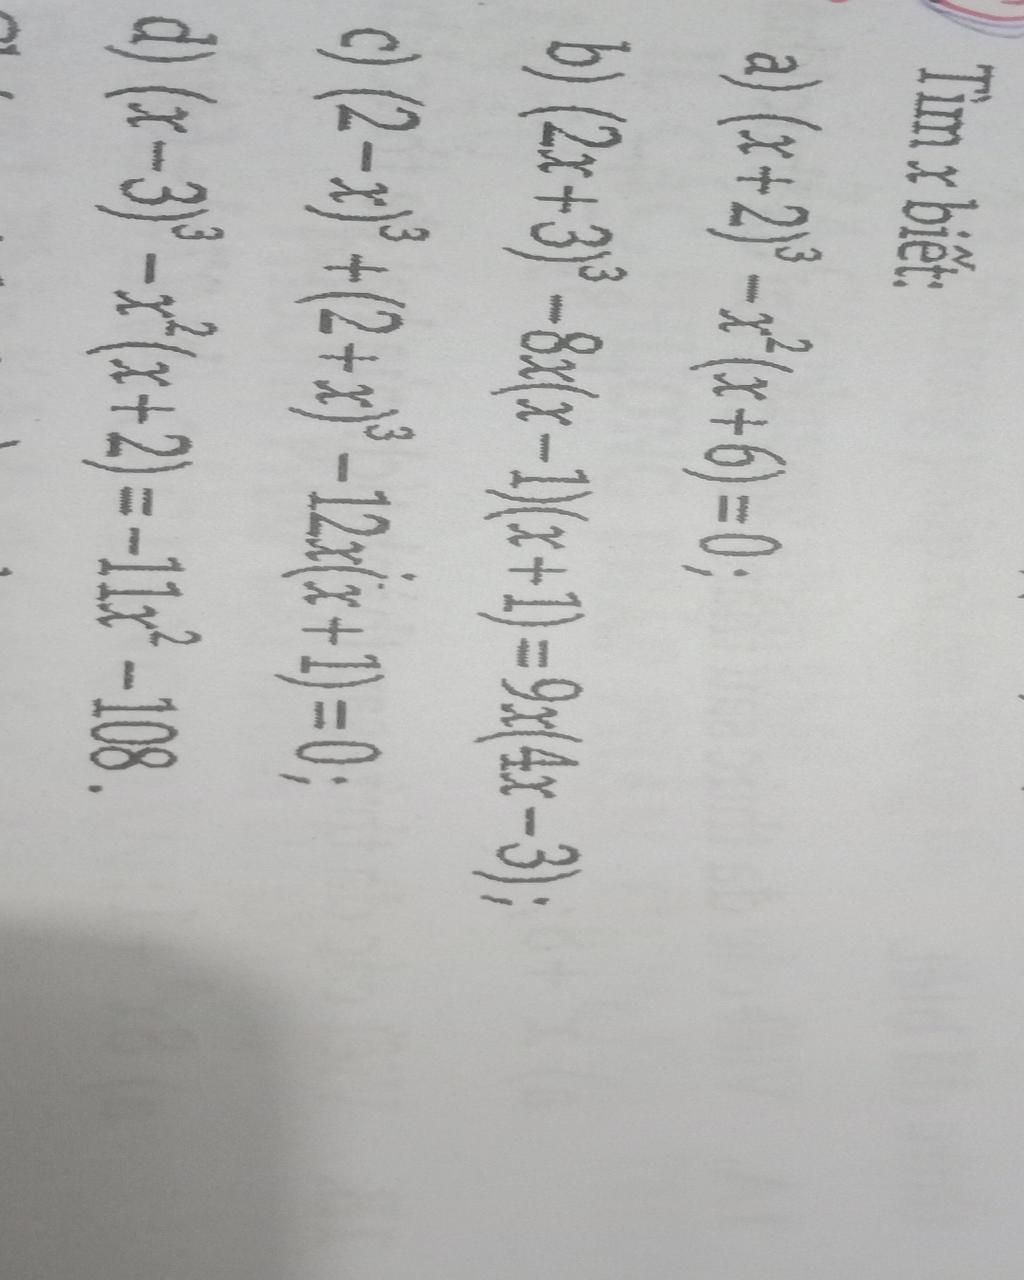 Tìm x biết:
a) (x+2)³ − x²(x+6) = 0;
b) (2x+3)³ − 8x(x−1)(x+1) = 9x(4x−3);
c) (2−x)³ + (2+x)³ − 12x(x+1) = 0;
d) (x−3)³ − x²(x+2) = −11x² − 108.